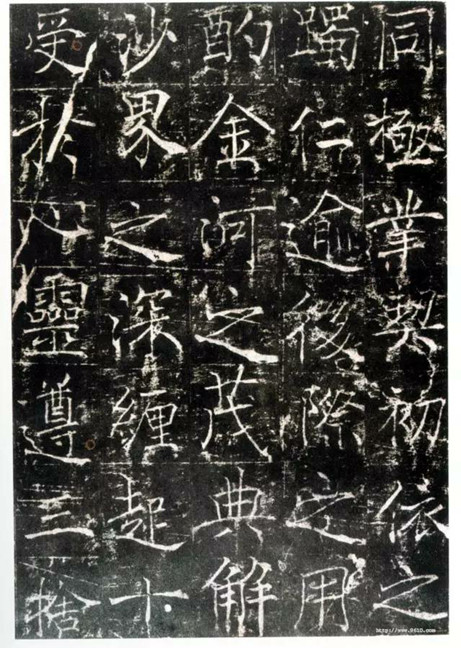 同極業契初依之
躅仁逾後際之用
酌金河之茂典解
沙界之深纏起十
受於靈遵三
http://www.9610.com